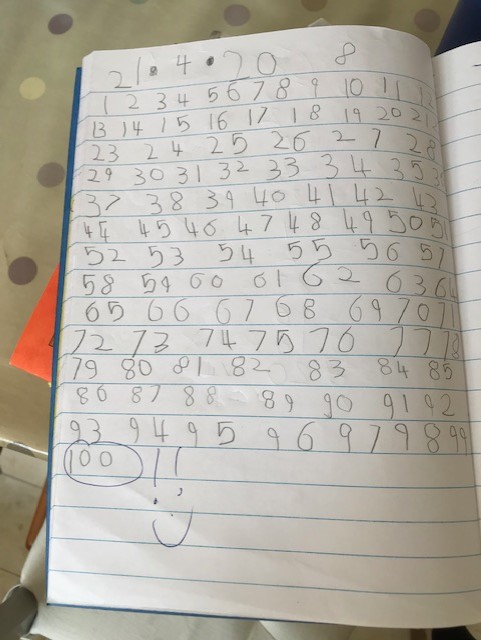 21.4.20 8
1 2 3 4 5 6 7 8 9 10 11 12
13 14 15 16 17 18 19 20 21
23 24 25 26 27 28
29 30 31 32 33 34 35 3
37 38 39 40 41 42 43
44 45 46 47 48 49 50 51
52 53 54 55 56 57
58 59 60 61 62 63 64
65 66 67 68 69 70 71
72 73 74 75 76 77 78
79 80 81 82 83 84 85
86 87 88 89 90 91 92
93 94 95 96 97 98 99
100 !!
:)